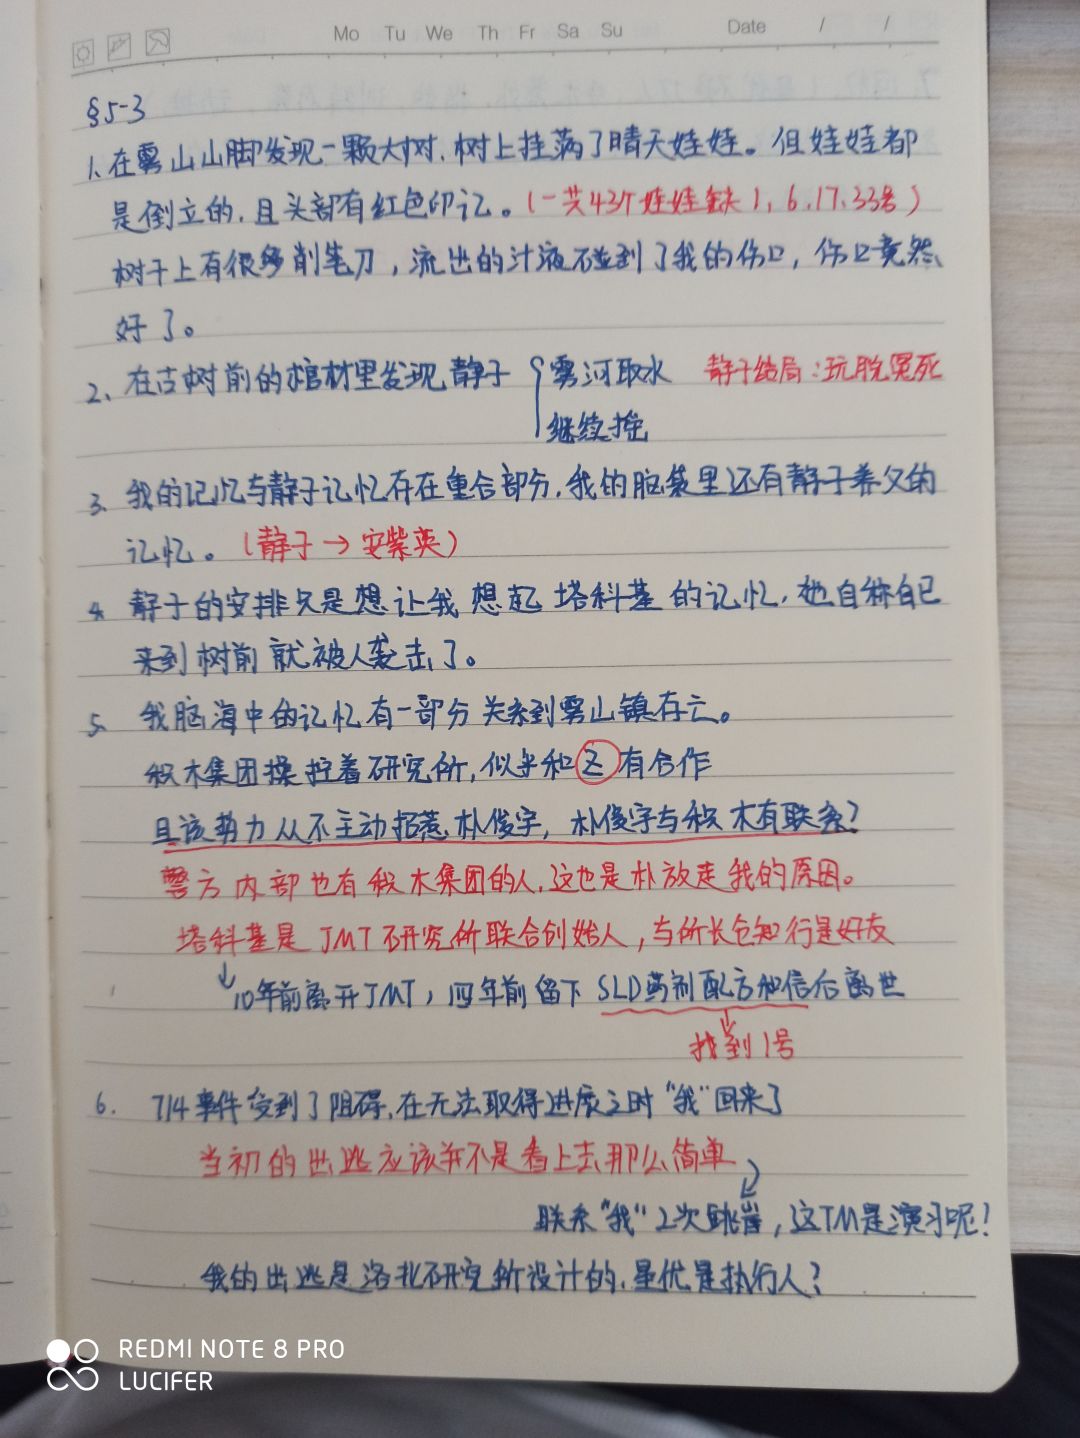 Mo Tu We Th Fr Sa Su Date / /
§5-3
1、在雾山山脚发现一颗大树,树上挂满了晴天娃娃。但娃娃都
是倒立的,且头部有红色印记。(一共43个娃娃缺1、6、17、33号)
树干上有很多削笔刀,流出的汁液碰到了我的伤口,伤口竟然
好了。
2、在古树前的棺材里发现静子 雾河取水 静子结局:玩脱冤死
继续挖
3、我的记忆与静子记忆存在重合部分,我的脑袋里还有静子养父的
记忆。(静子→安紫英)
4、静子的安排只是想让我想起塔科基的记忆,她自称自己
来到树前就被人袭击了。
5、我脑海中的记忆有一部分关系到雾山镇存亡。
积木集团操控着研究所,似乎和Z有合作
且该势力从不主动招惹朴俊宇,朴俊宇与积木有联系?
警方内部也有积木集团的人,这也是朴放走我的原因。
塔科基是JMT研究所联合创始人,与所长仓知行是好友
10年前离开JMT,四年前留下SLD药剂配方和信后离世
找到1号
6. 714事件受到了阻碍,在无法取得进展之时“我”回来了
当初的出逃应该并不是看上去那么简单
联系“我”2次跳崖,这TM是演习呢!
我的出逃是洛北研究所设计的,星优是执行人?
REDMI NOTE 8 PRO
LUCIFER